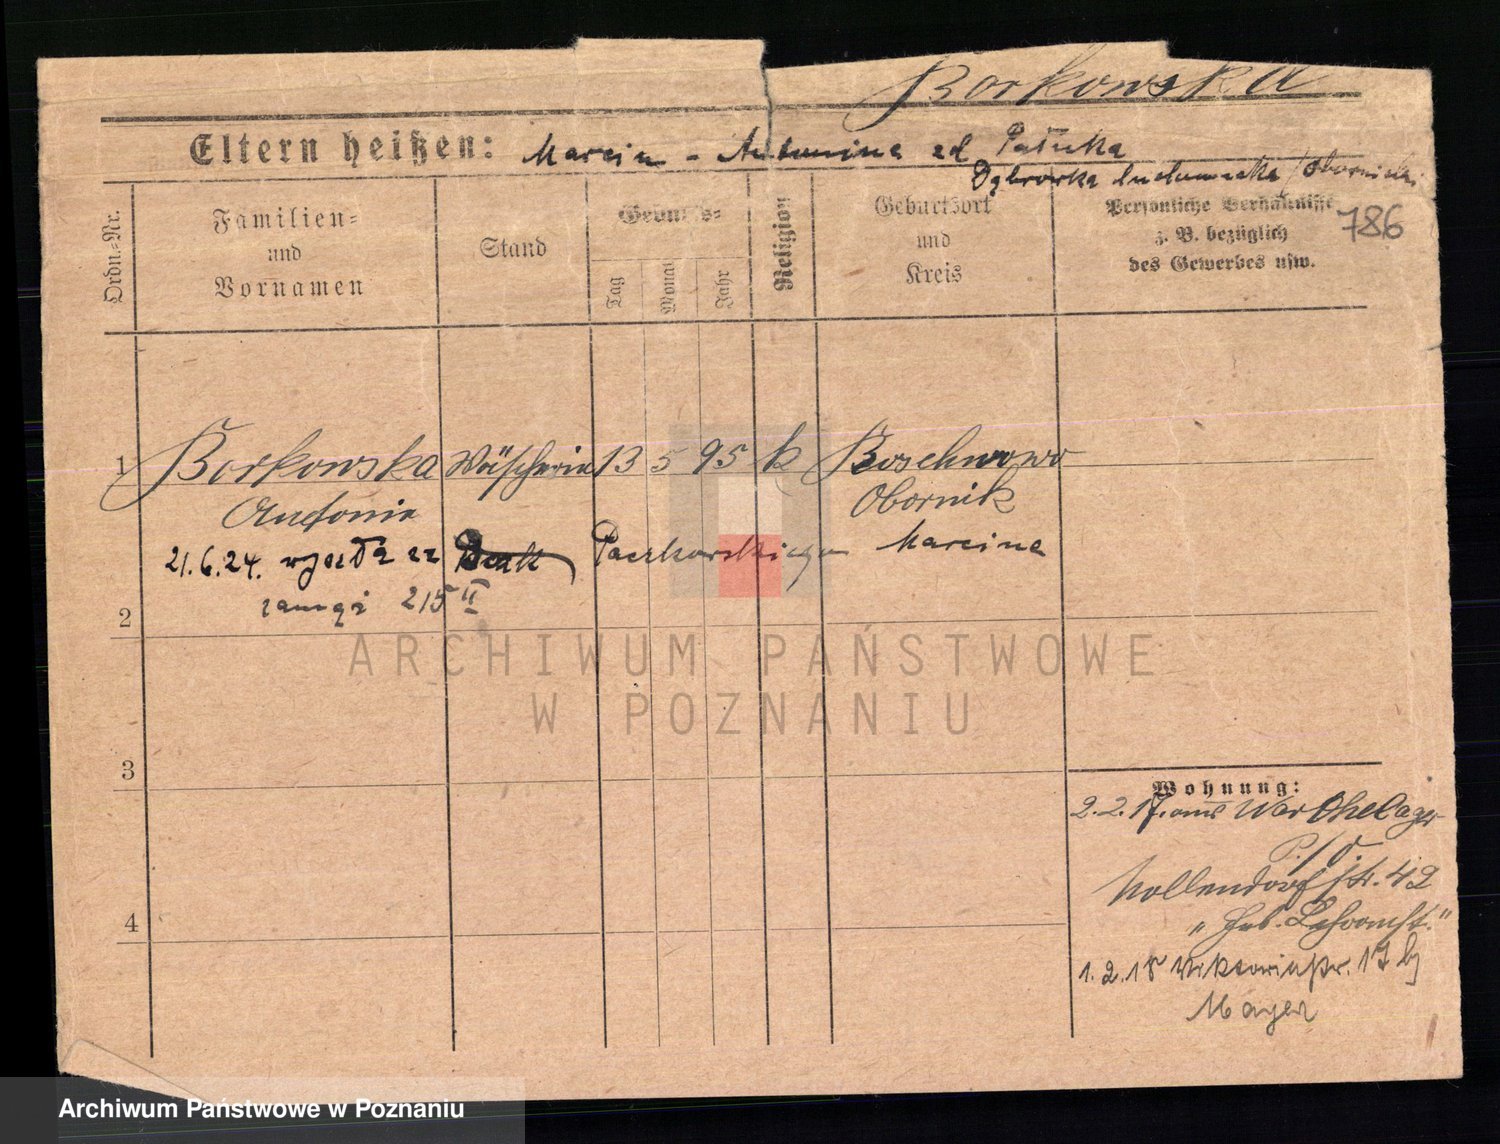 Borkowska
Eltern heißen: Marcin - Antonina zd Pałuka
Dąbrówka Ludomska / Obornicki
786
Ordn.-Nr.
Familien-
und
Vornamen
Stand
Geburts-
Tag
Monat
Jahr
Religion
Geburtsort
und
Kreis
Persönliche Verhältnisse
z. B. bezüglich
des Gewerbes usw.
1 Borkowska Wäscherin 13 5 95 k
Obornik
Antonie
21.6.24. wyszła za Paczkowskiego Marcina
zamąż 215 II
2
3
4
Wohnung:
2.2.17. aus Warthelager
P./O.
Nollendorfstr. 42
1.2.18 Viktoriastr. 17 bj
Mayer
ARCHIWUM PAŃSTWOWE
W POZNANIU
Archiwum Państwowe w Poznaniu